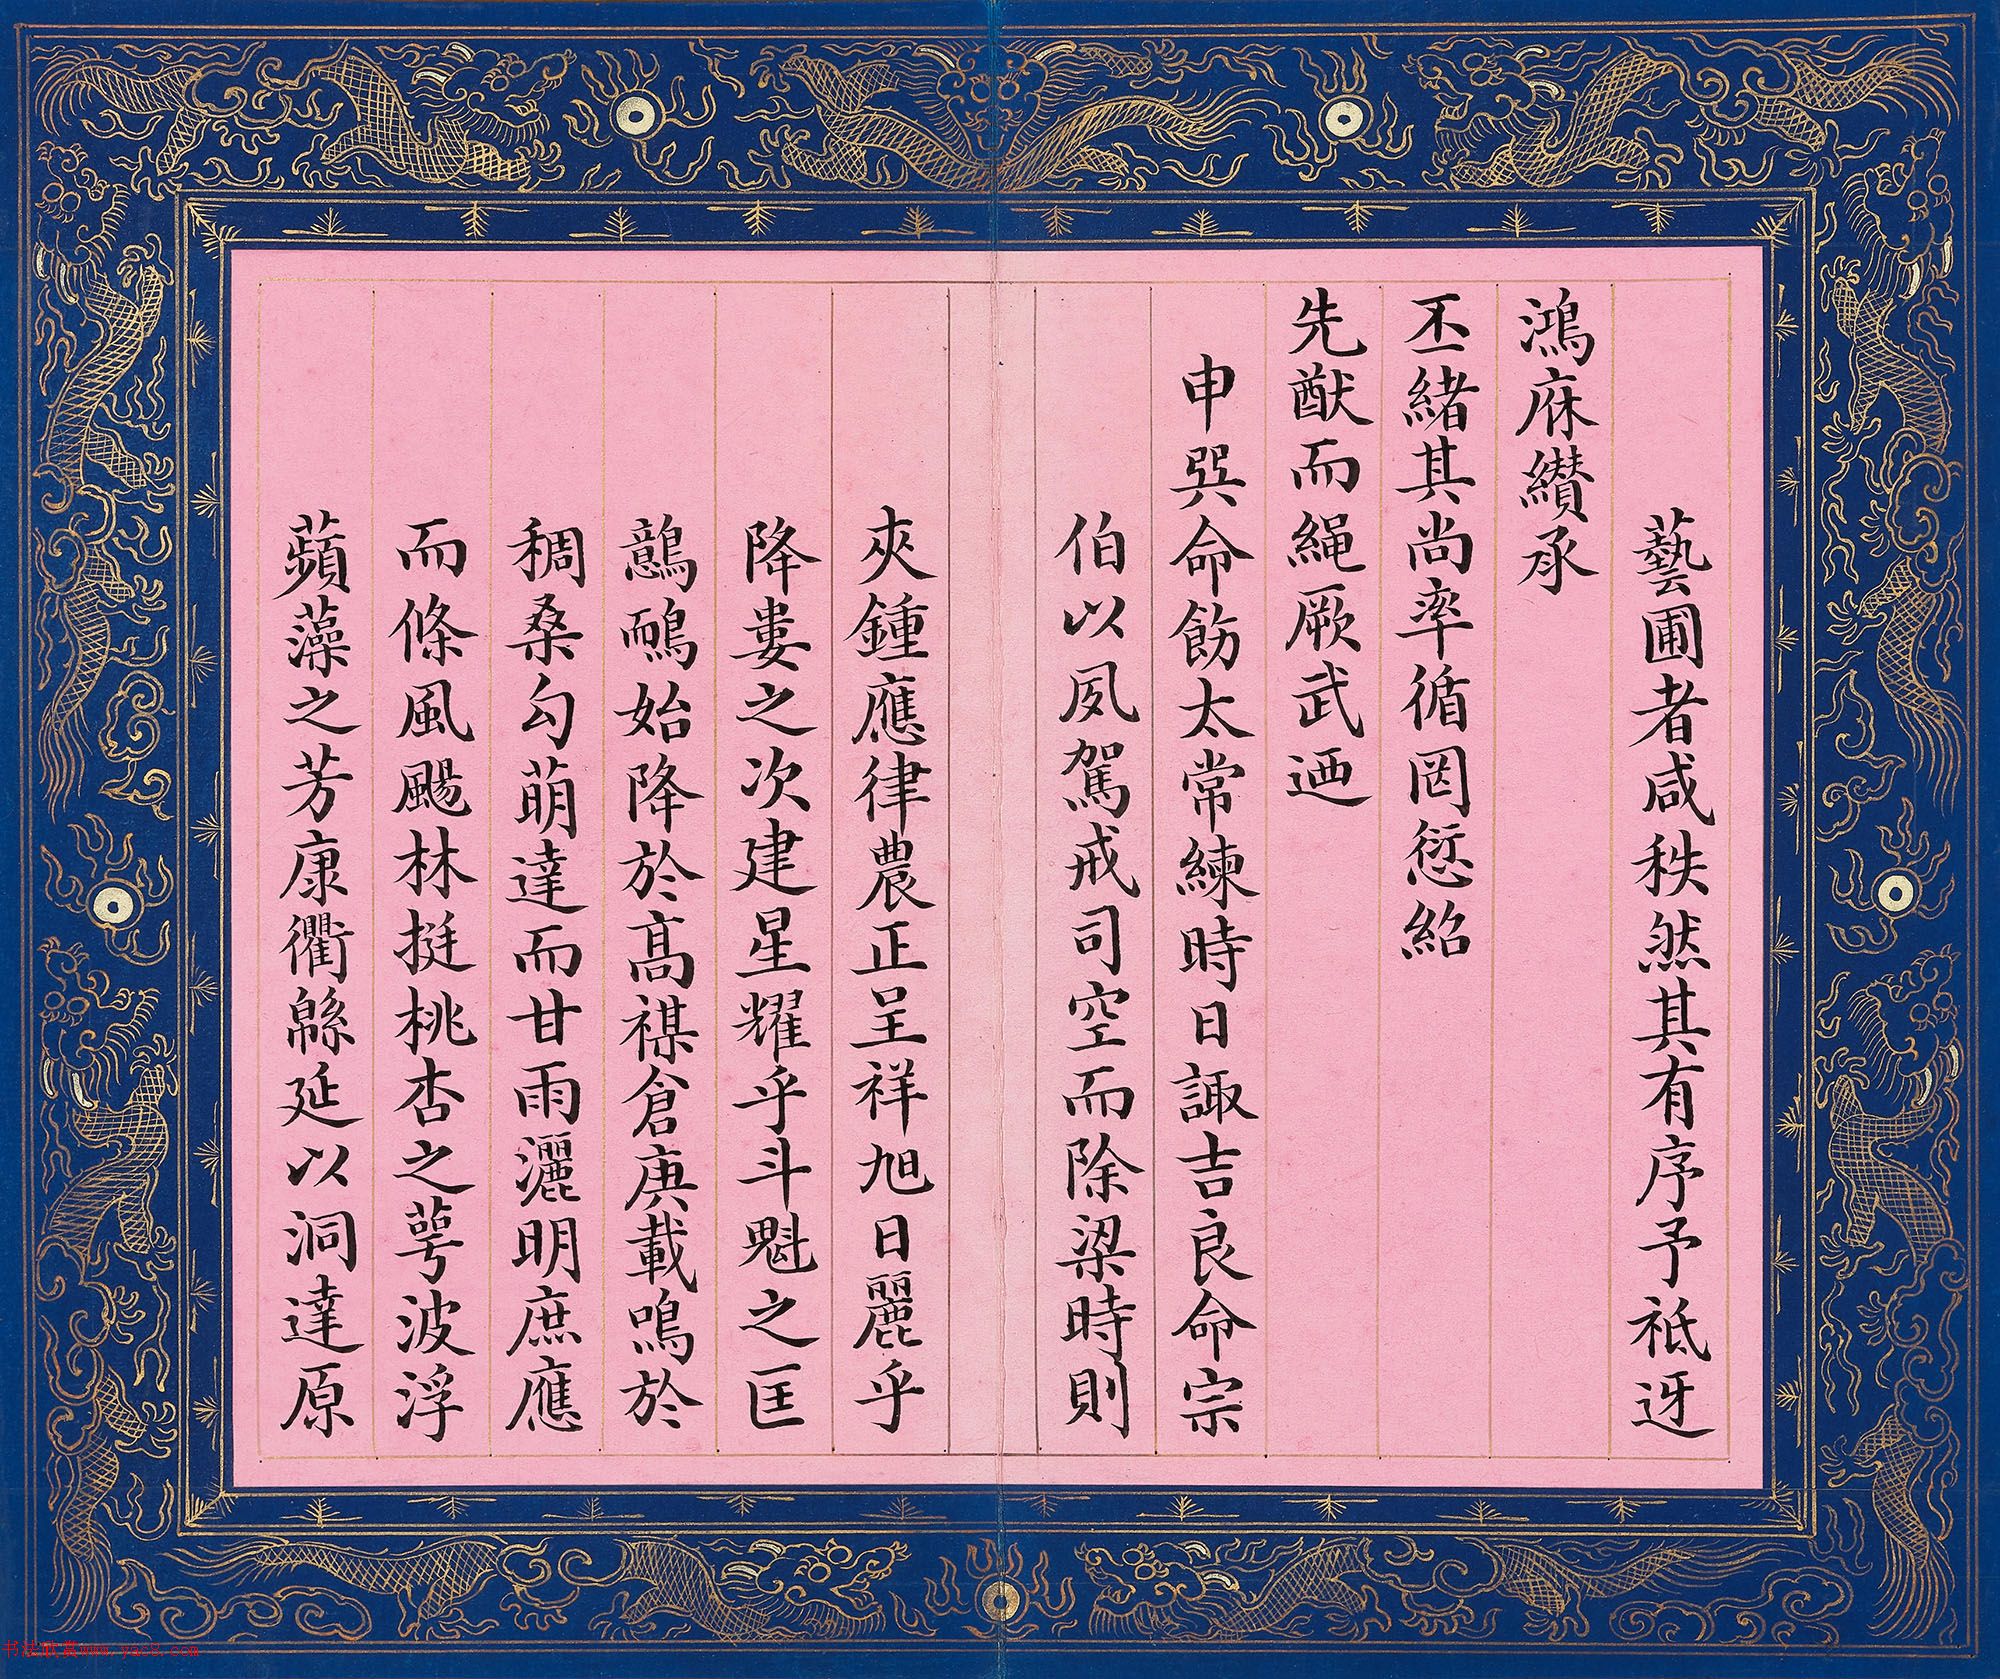 藝圃者咸秩然其有序予祗迓
鴻庥纘承
丕緒其尚率循罔愆紹
先猷而繩厥武迺
申巽命飭太常練時日諏吉良命宗
伯以夙駕戒司空而除梁時則
夾鍾應律農正呈祥旭日麗乎
降婁之次建星耀乎斗魁之匡
鷾鴯始降於高禖倉庚載鳴於
稠桑勾萌達而甘雨灑明庶應
而條風颺林挺桃杏之萼波浮
蘋藻之芳康衢緜延以洞達原
书法欣赏www.yac8.com